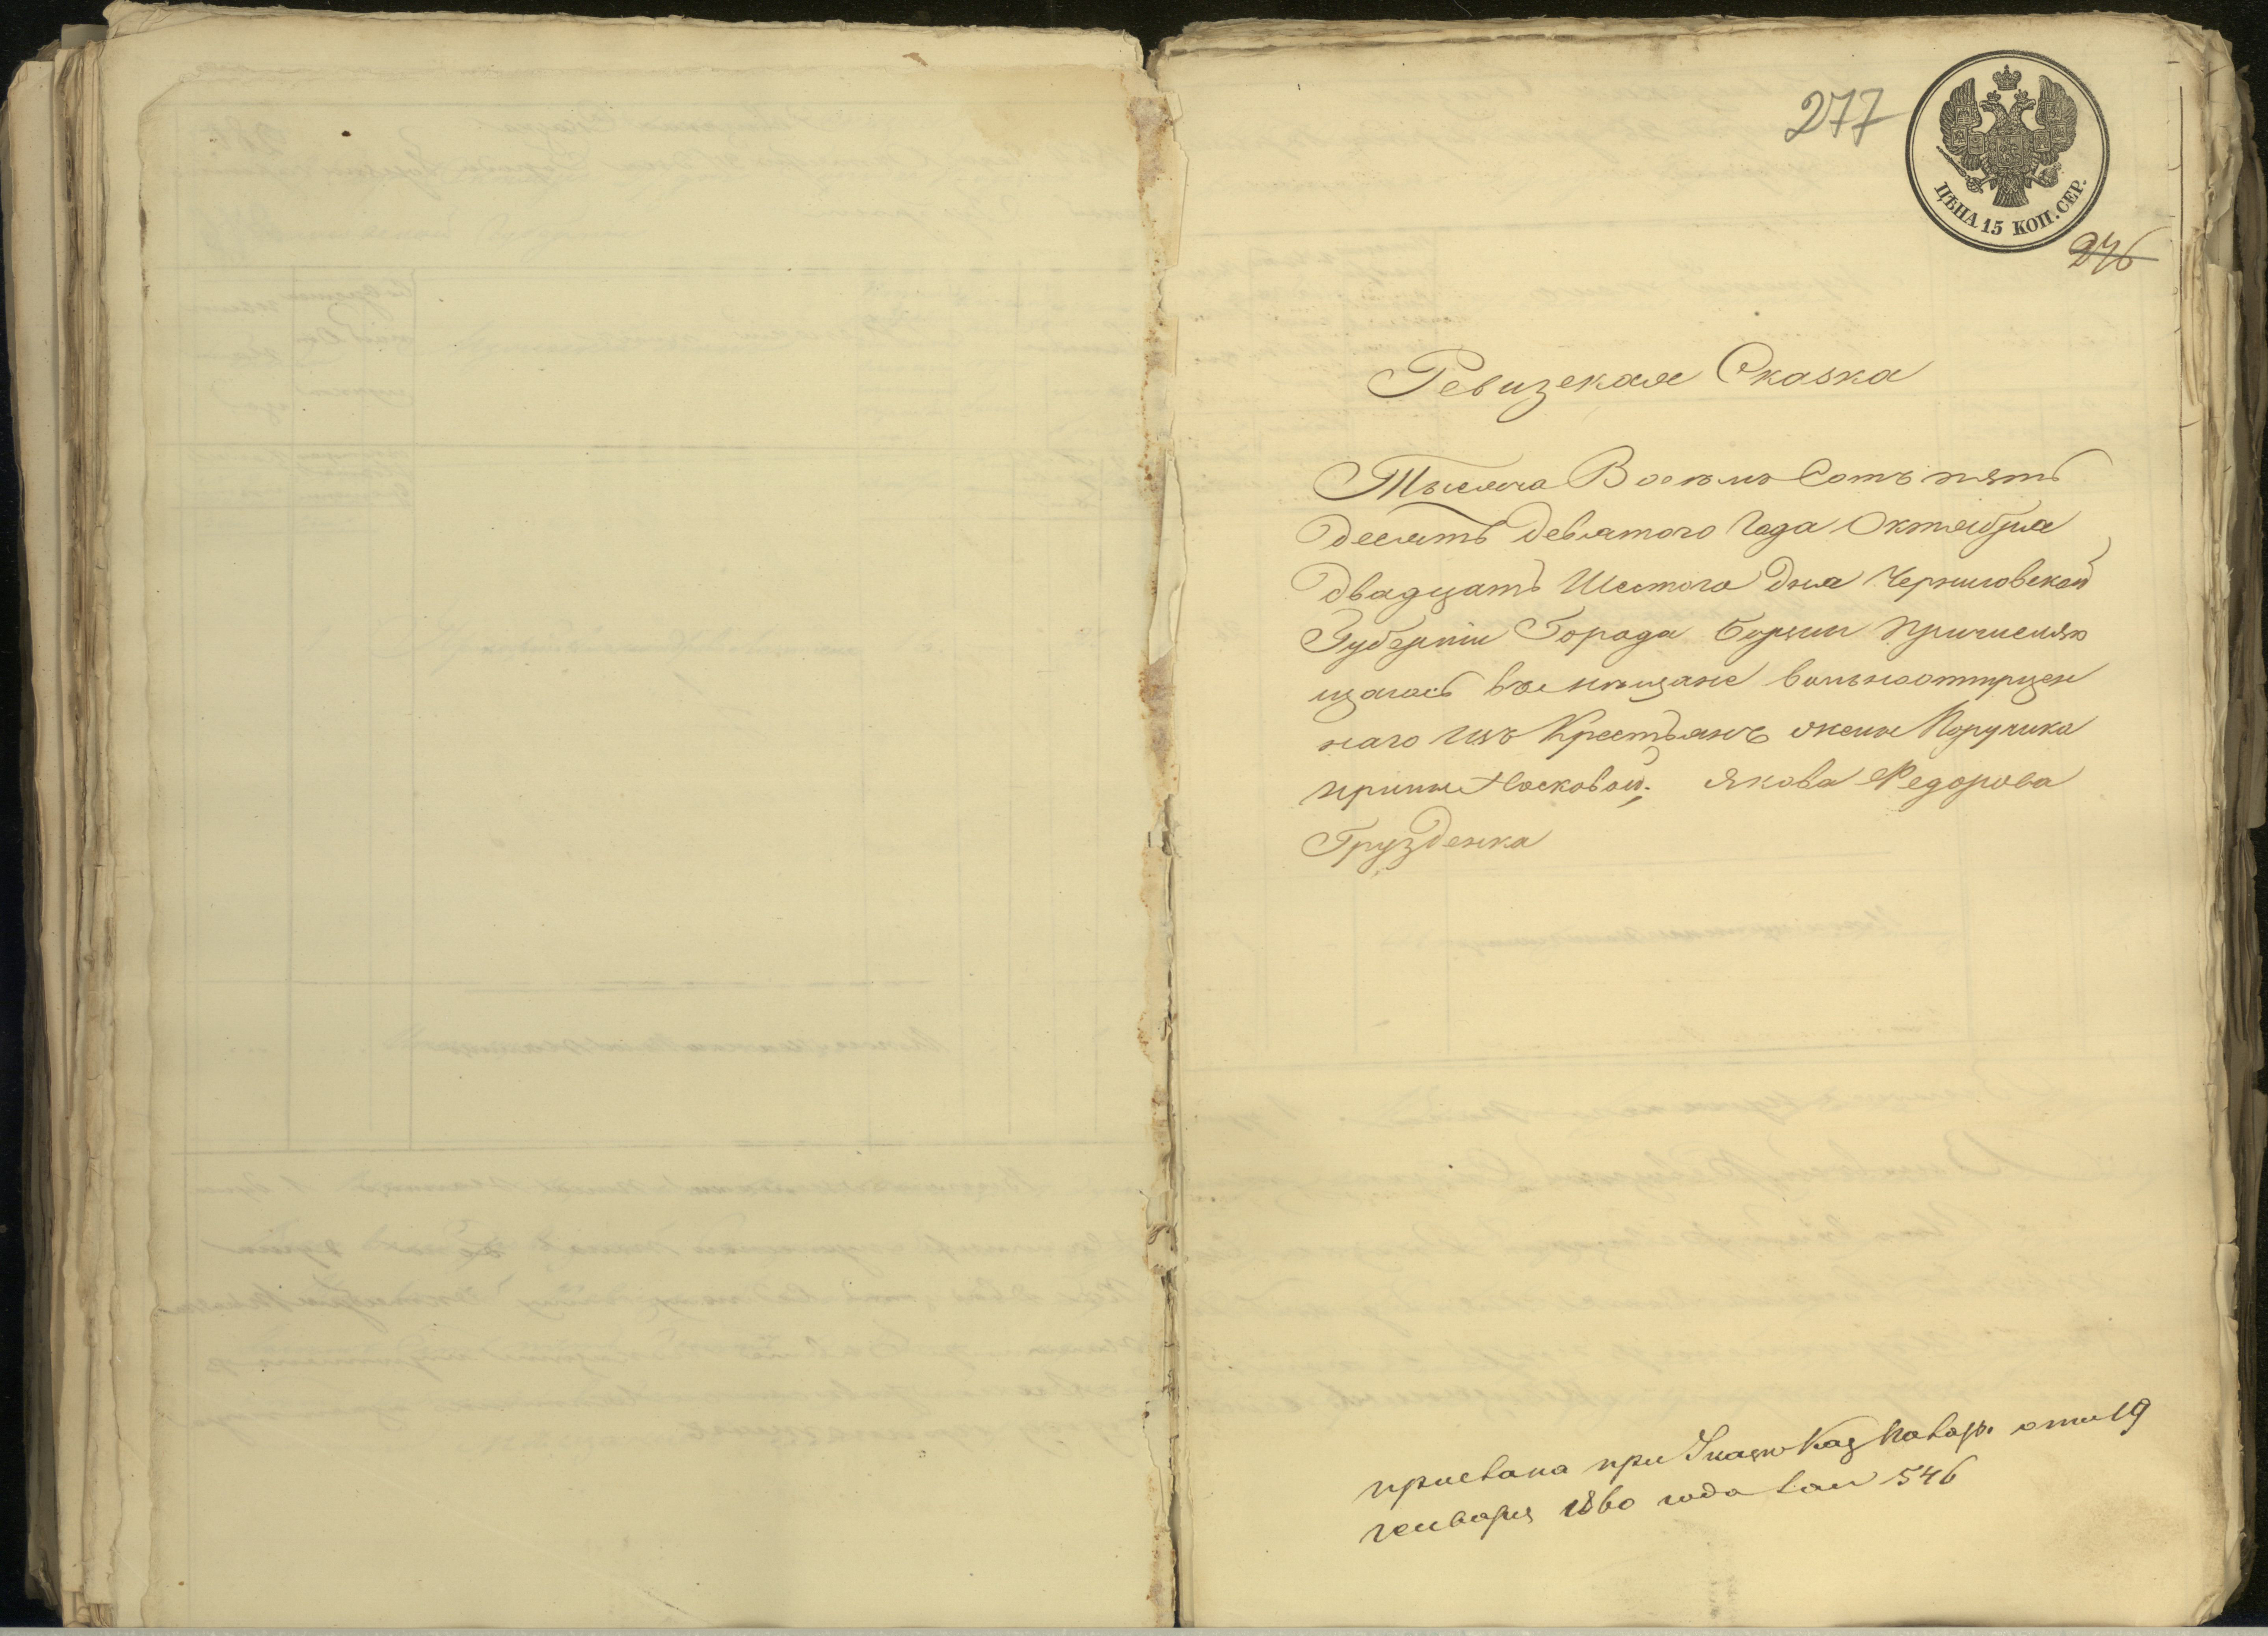 277
ЦѢНА 15 КОП. СЕР.
276
Ревизская Сказка
Тысяча Восемь Сотъ пять
десятъ девятого Года Октября
двадцать Шестого Дня Черниговской
Губерніи Города Борзни причисляю
щагося въ мѣщане вольноотпущен
наго изъ Крестьянъ жены Поручика
Ирины Носковой; Якова Федорова
Грузденка
прислана при Указѣ Каз отъ 19
генваря 1860 года 546